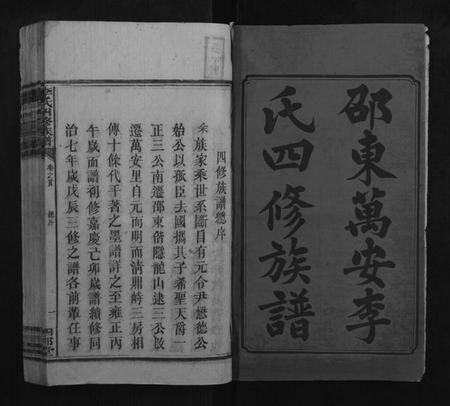 邵東萬安李
氏四修族譜
四修族譜總序
族家乘世系斷自有元令尹懋德公
始公以孤臣去國攜其子希聖天爵一
正三公南遷邵東偕隱龍山逮三公啟
遷萬安里自元而明而清則歭三房相
傳十餘代手著之墨譜詳之至雍正丙
午歲而譜刱修嘉慶己卯歲譜續修同
治七年歲戊辰三修之譜各前輩任事
李氏四修族譜
卷之首
總序
一